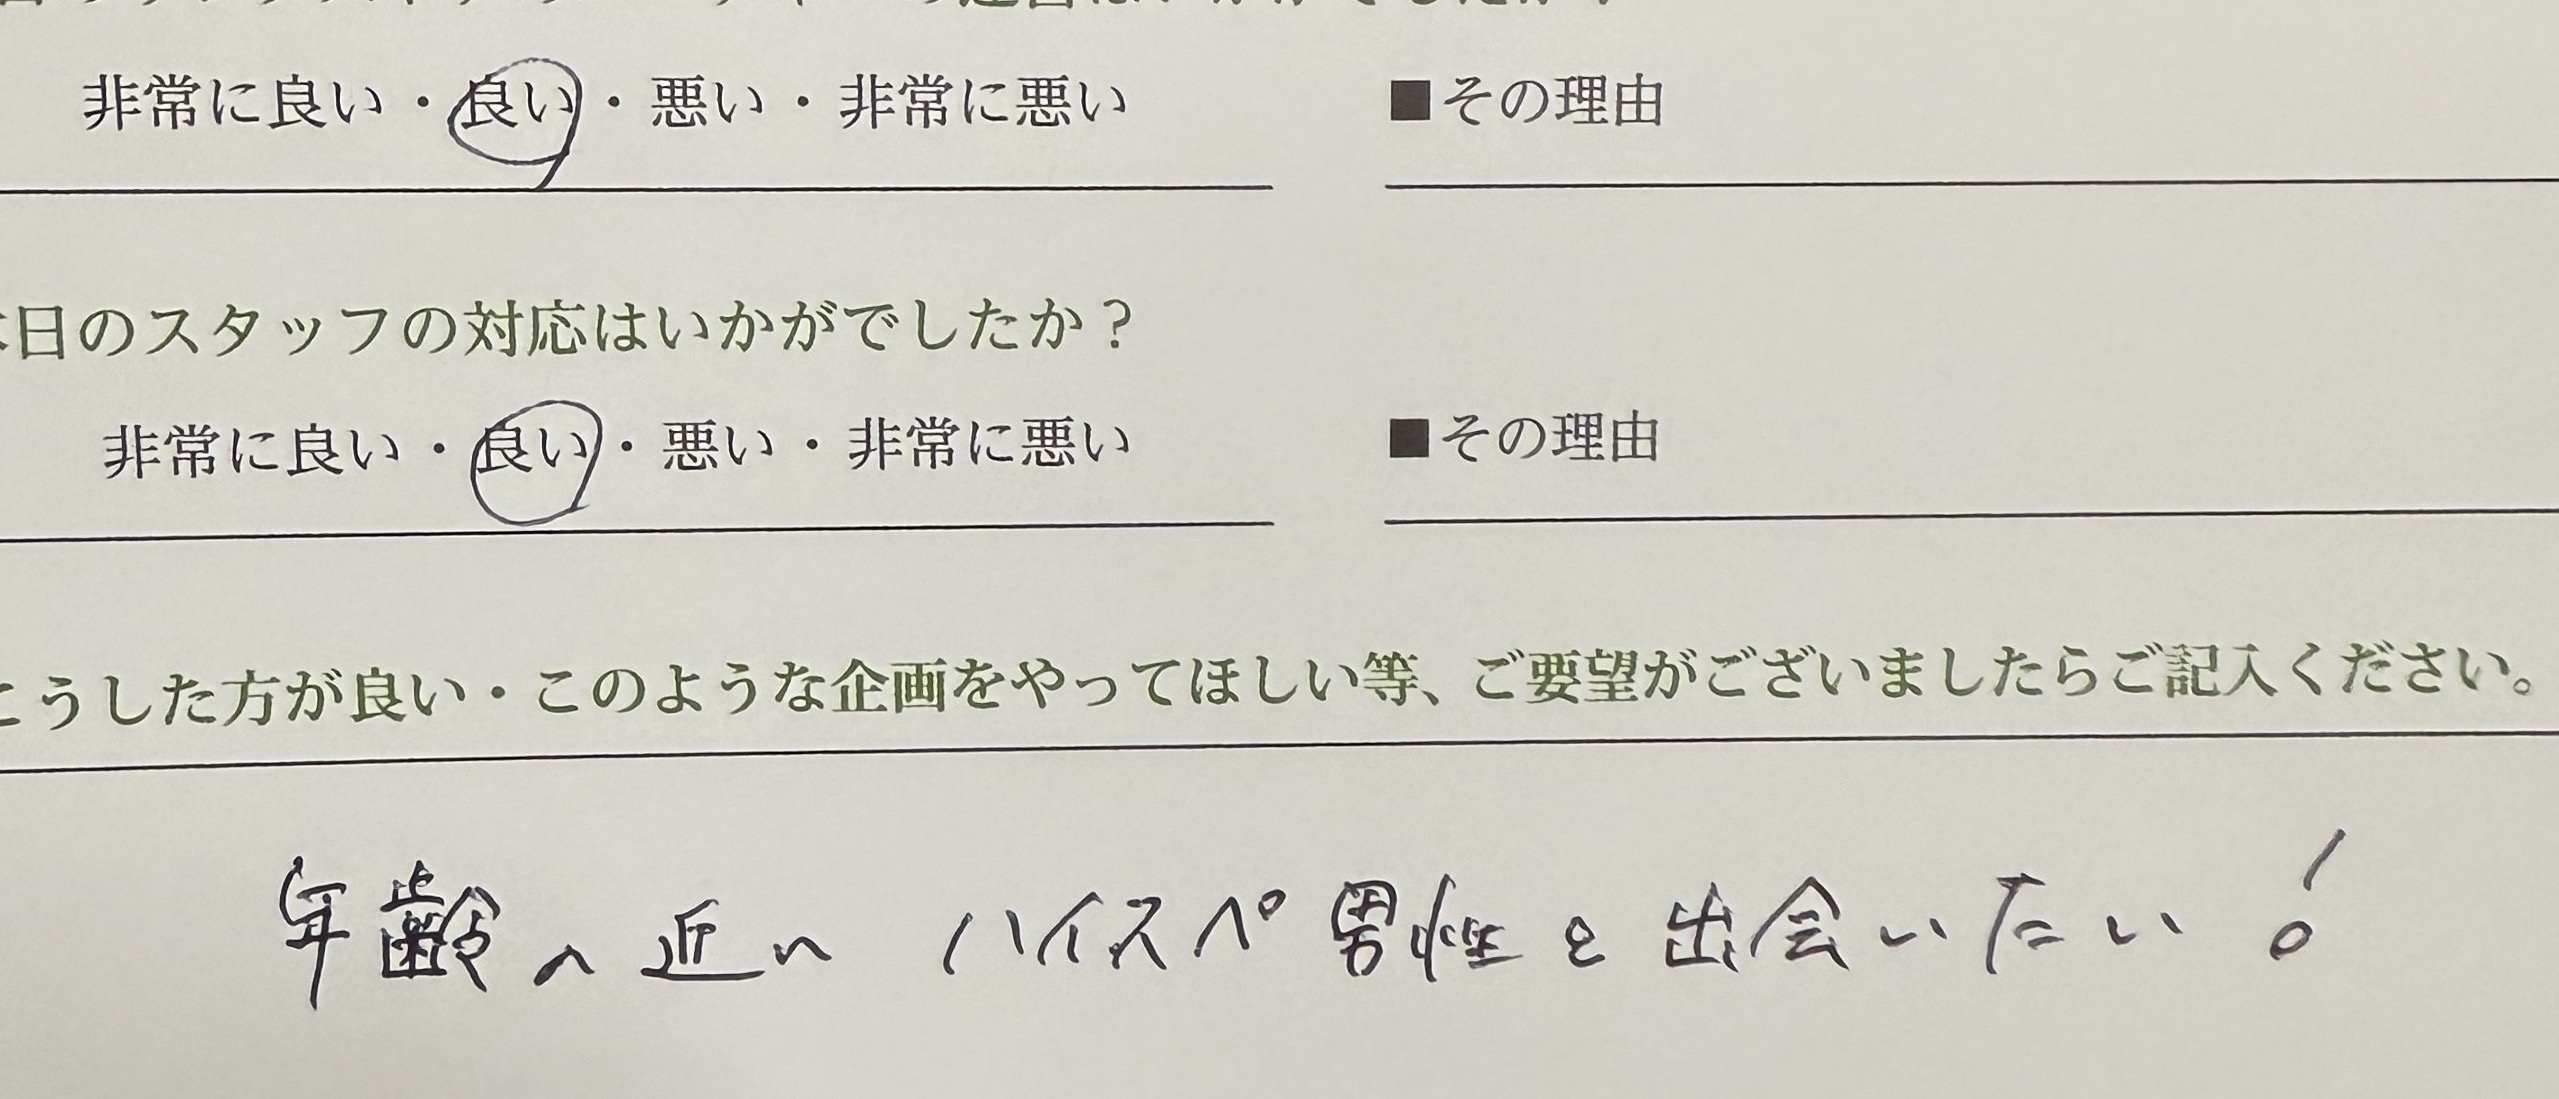 非常に良い・良い・悪い・非常に悪い ■その理由
本日のスタッフの対応はいかがでしたか？
非常に良い・良い・悪い・非常に悪い ■その理由
こうした方が良い・このような企画をやってほしい等、ご要望がございましたらご記入ください。
年齢の近い ハイスペ男性と出会いたい！